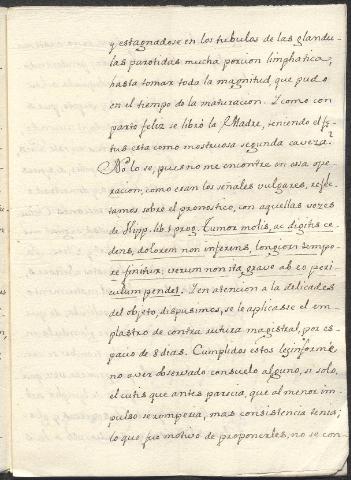 y estagnadose en los tubulos de las glandu-
las parotidas mucha porcion limphatica,
hasta tomar toda la magnitud, que pudo
en el tiempo de la maturacion. Y como con
parto feliz se libró la Madre, teniendo el fę-
tus esta como mostruosa segunda caveza?
No lo se, pues no me encontre en esa ope-
racion; como eran los señales vulgares, refle-
tamos sobre el pronostico, con aquellas vozes
de Hipp. lib. 1 prog. Tumor molis, ac digitis ce-
dens, dolorem non inferens, longiori tempo-
re finitur: verum non ita grave ab eo peri-
culum pendet. Y en atencion a la delicades
del objeto, dispusimos, se le aplicasse el em-
plastro de contra rutura magistral, por es-
pacio de 8 dias. Cumplidos estos le informè
no aver observado consuelo alguno, si solo,
el cutis que antes parecia, que al menor im-
pulso se rompería, mas consistencia tenia;
lo que fue motivo de proponerles, no se con-